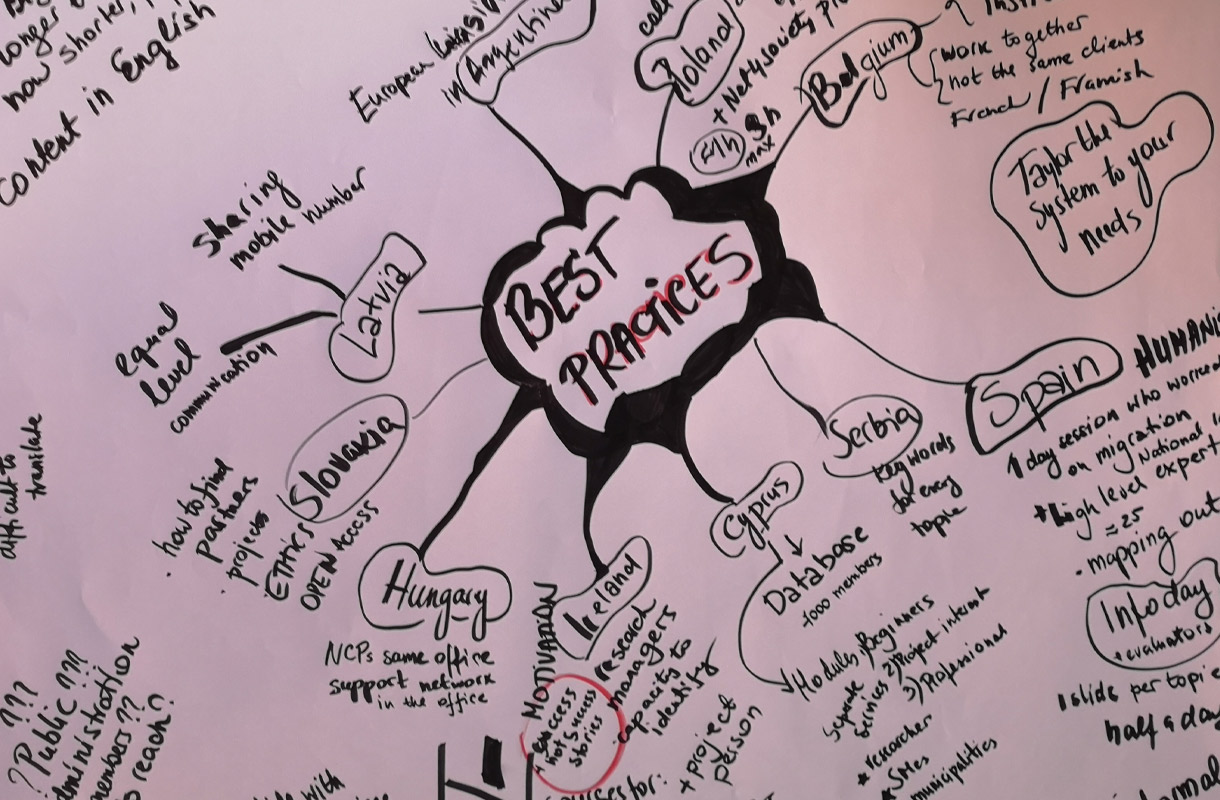 longer
now shorter,
content in English
European
in Argentina
Poland
+ Net4society
<1h
3h
max
Belgium
work together
not the same clients
French / Framish
Taylor the
system to your
needs
sharing
mobile number
Latvia
equal
level
communication
BEST
PRACTICES
Spain
1 day session who worked
on migration
National
high level expert
≈25
• mapping out
Info day
+ evaluators
1 slide per topic
half a day
Serbia
keywords
for every
topic
Cyprus
Database
1000 members
Modules 1) Beginners
2) Project interest
3) Professional
separate
* researcher
* SMEs
municipalities
Slovakia
• how to find
partners
• projects
ETHICS
OPEN ACCESS
Hungary
NCPs same office
support network
in the office
Ireland
MOTIVATION
research
managers
capacity to
identify
+ project
person
success
not success
stories
difficult to
translate
???
? Public ???
administration
members ??
to reach?
with
for: